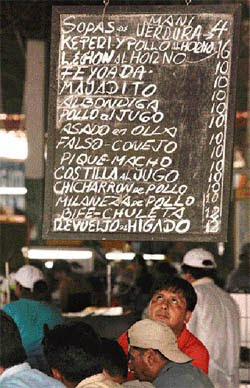 MANI
SOPAS DE VERDURA 4
KEPERI Y POLLO al HORNO 16
LECHON al HORNO
FEYOADA 10
MAJADITO 10
ALBONDIGA 10
POLLO al JUGO 10
ASADO EN OLLA 10
FALSO-CONEJO 10
PIQUE-MACHO 10
COSTILLA al JUGO 10
CHICHARRON DE POLLO 10
MILANEZA DE POLLO 10
BIFE-CHULETA 12
HIGADO 12